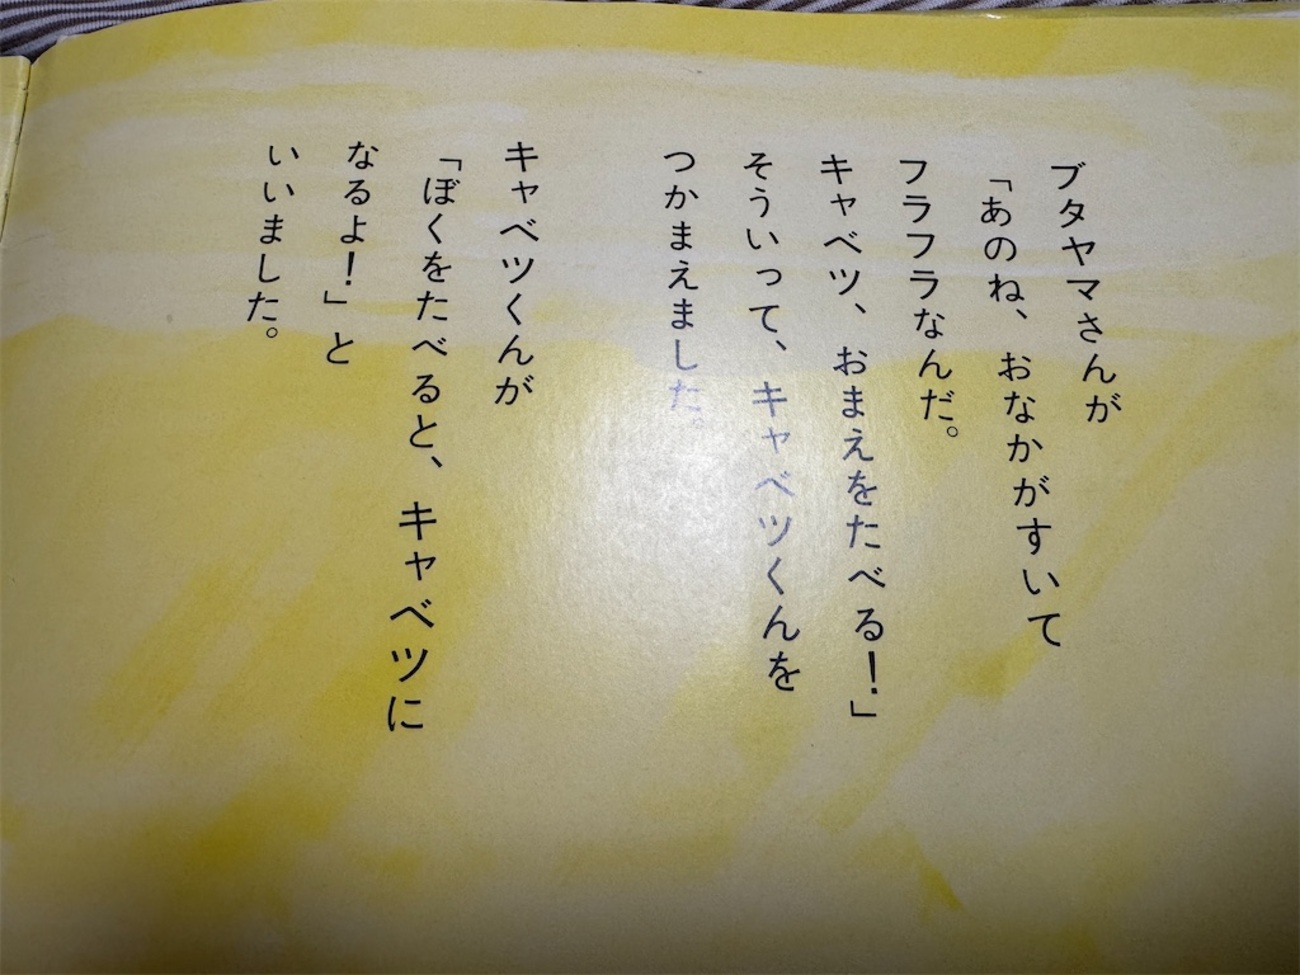 ブタヤマさんが
「あのね、おなかがすいて
フラフラなんだ。
キャベツ、おまえをたべる！」
そういって、キャベツくんを
つかまえました。
キャベツくんが
「ぼくをたべると、キャベツに
なるよ！」と
いいました。